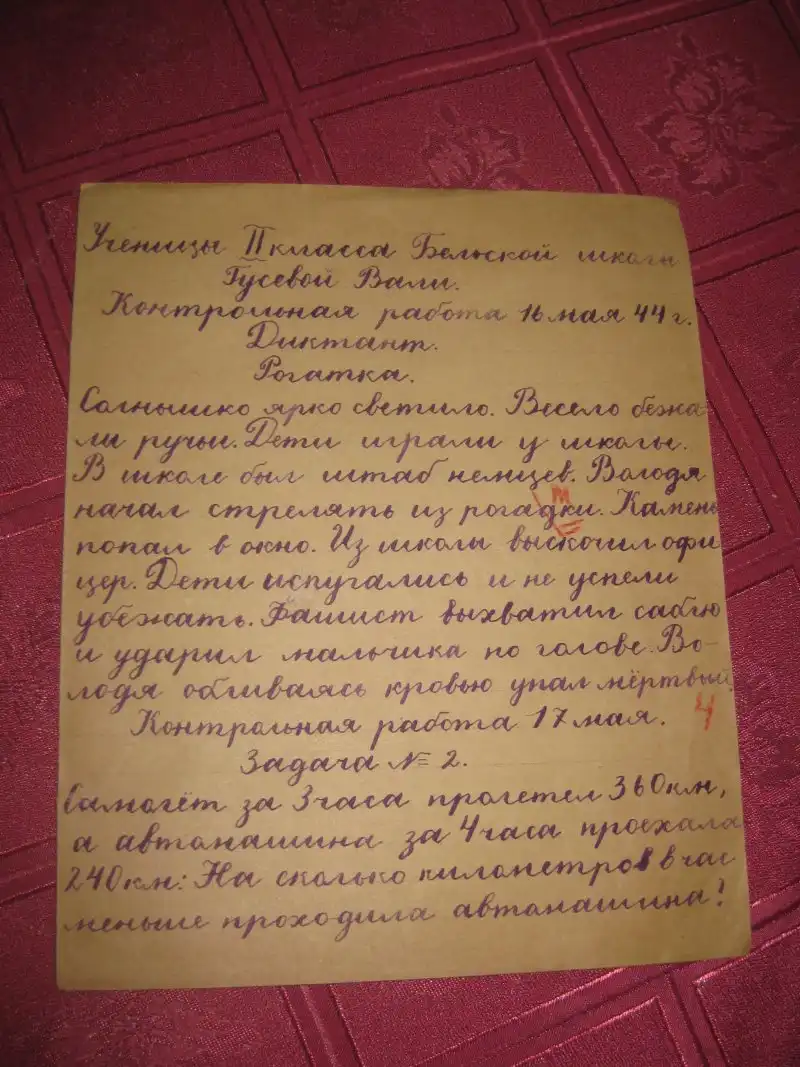 Ученицы II класса Бельской школы
Гусевой Вали.
Контрольная работа 16 мая 44 г.
Диктант.
Рогатка.
Солнышко ярко светило. Весело бежа-
ли ручьи. Дети играли у школы.
В школе был штаб немцев. Володя
т
начал стрелять из рогадки. Камень
попал в окно. Из школы выскочил офи
цер. Дети испугались и не успели
убежать. Фашист выхватил саблю
и ударил мальчика по голове. Во-
лодя обливаясь кровью упал мёртвый.
4
Контрольная работа 17 мая.
Задача № 2.
Самолёт за 3 часа пролетел 360 км,
а автомашина за 4 часа проехала
240 км: На сколько километров в час
меньше проходила автомашина?